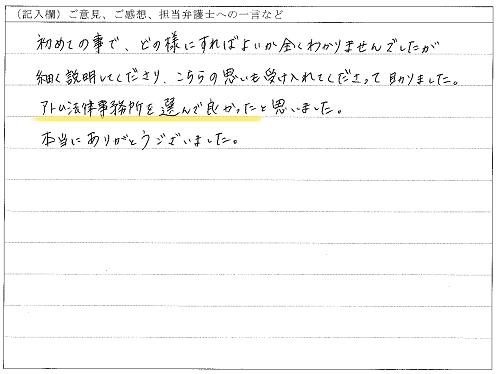 (記入欄) ご意見、ご感想、担当弁護士への一言など
初めての事で、どの様にすればよいか全くわかりませんでしたが
細く説明してくださり、こちらの思いも受け入れてくださって助りました。
アトム法律事務所を選んで良かったと思いました。
本当にありがとうございました。